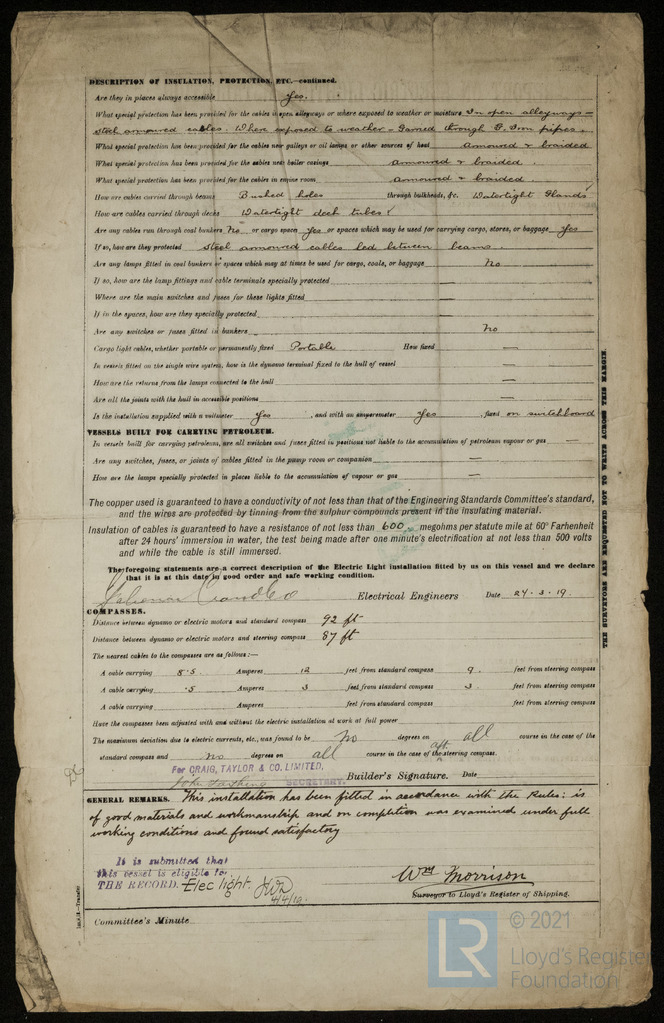 DESCRIPTION OF INSULATION, PROTECTION, ETC.—continued.
Are they in places always accessible Yes.
What special protection has been provided for the cables in open alleyways or where exposed to weather or moisture In open alleyways—
steel armoured cables. Where exposed to weather - through G. Iron pipes.
What special protection has been provided for the cables near galleys or oil lamps or other sources of heat armoured & braided
What special protection has been provided for the cables near boiler casings armoured & braided.
What special protection has been provided for the cables in engine room armoured & braided.
How are cables carried through beams Bushed holes through bulkheads, &c. Watertight Glands
How are cables carried through decks Watertight deck tubes
Are any cables run through coal bunkers No or cargo space Yes or spaces which may be used for carrying cargo, stores, or baggage Yes
If so, how are they protected Steel armoured cables led between beams.
Are any lamps fitted in coal bunkers or spaces which may at times be used for cargo, coals, or baggage No
If so, how are the lamp fittings and cable terminals specially protected —
Where are the main switches and fuses for these lights fitted —
If in the spaces, how are they specially protected —
Are any switches or fuses fitted in bunkers No
Cargo light cables, whether portable or permanently fixed Portable How fixed —
In vessels fitted on the single wire system, how is the dynamo terminal fixed to the hull of vessel —
How are the returns from the lamps connected to the hull —
Are all the joints with the hull in accessible positions —
Is the installation supplied with a voltmeter Yes, and with an amperemeter Yes, fixed on switchboard
VESSELS BUILT FOR CARRYING PETROLEUM.
In vessels built for carrying petroleum, are all switches and fuses fitted in positions not liable to the accumulation of petroleum vapour or gas —
Are any switches, fuses, or joints of cables fitted in the pump room or companion —
How are the lamps specially protected in places liable to the accumulation of vapour or gas —
The copper used is guaranteed to have a conductivity of not less than that of the Engineering Standards Committee's standard,
and the wires are protected by tinning from the sulphur compounds present in the insulating material.
Insulation of cables is guaranteed to have a resistance of not less than 600 megohms per statute mile at 60° Farhenheit
after 24 hours' immersion in water, the test being made after one minute's electrification at not less than 500 volts
and while the cable is still immersed.
The foregoing statements are a correct description of the Electric Light installation fitted by us on this vessel and we declare
that it is at this date in good order and safe working condition.
Electrical Engineers Date 24.3.19.
COMPASSES.
Distance between dynamo or electric motors and standard compass 92 ft
Distance between dynamo or electric motors and steering compass 87 ft
The nearest cables to the compasses are as follows:—
A cable carrying 8.5 Amperes 12 feet from standard compass 9. feet from steering compass
A cable carrying .5 Amperes 3 feet from standard compass 3. feet from steering compass
A cable carrying Amperes feet from standard compass feet from steering compass
Have the compasses been adjusted with and without the electric installation at work at full power
The maximum deviation due to electric currents, etc., was found to be No degrees on all course in the case of the
standard compass and no degrees on all course in the case of the aft steering compass.
For CRAIG, TAYLOR & CO. LIMITED,
SECRETARY. Builder's Signature. Date
GENERAL REMARKS. This installation has been fitted in accordance with the Rules: is
of good materials and workmanship and on completion was examined under full
working conditions and found satisfactory
It is submitted that
this vessel is eligible for
THE RECORD. Elec light.
4/4/19.
Wm Morrison
Surveyor to Lloyd's Register of Shipping.
Committee's Minute
THE SURVEYORS ARE REQUESTED NOT TO WRITE ACROSS THIS MARGIN
© 2021
Lloyd's Register
Foundation
LR